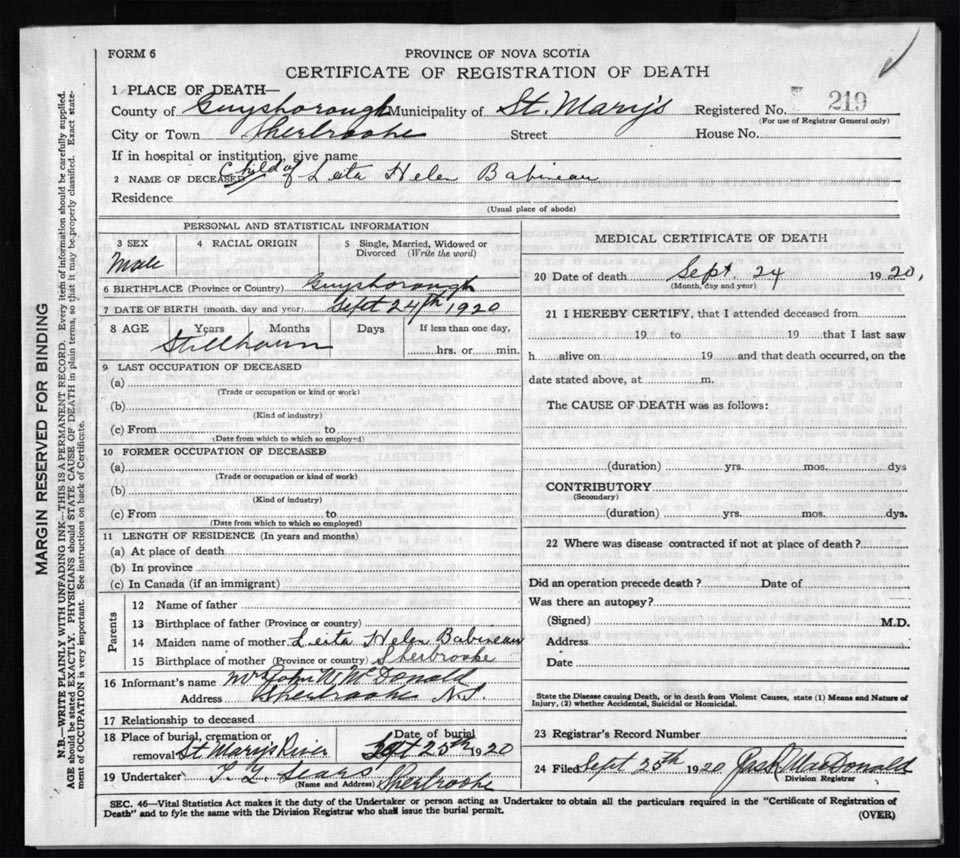 FORM 6
PROVINCE OF NOVA SCOTIA
CERTIFICATE OF REGISTRATION OF DEATH
1 PLACE OF DEATH—
County of Guysborough Municipality of St. Mary's Registered No. 219
(For use of Registrar General only)
City or Town Sherbrooke Street House No.
If in hospital or institution, give name
2 NAME OF DECEASED Child of Leita Helen Babineau
Residence
(Usual place of abode)
PERSONAL AND STATISTICAL INFORMATION
3 SEX 4 RACIAL ORIGIN 5 Single, Married, Widowed or Divorced (Write the word)
Male
6 BIRTHPLACE (Province or Country) Guysborough
7 DATE OF BIRTH (month, day and year) Sept 24th 1920
8 AGE Years Months Days If less than one day,
Stillborn hrs. or min.
9 LAST OCCUPATION OF DECEASED
(a)
(Trade or occupation or kind or work)
(b)
(Kind of industry)
(c) From to
(Date from which to which so employed)
10 FORMER OCCUPATION OF DECEASED
(a)
(Trade or occupation or kind of work)
(b)
(Kind of industry)
(c) From to
(Date from which to which so employed)
11 LENGTH OF RESIDENCE (In years and months)
(a) At place of death
(b) In province
(c) In Canada (if an immigrant)
Parents
12 Name of father
13 Birthplace of father (Province or country)
14 Maiden name of mother Leita Helen Babineau
15 Birthplace of mother (Province or country) Sherbrooke
16 Informant's name Mrs John W McDonald
Address Sherbrooke N.S.
17 Relationship to deceased
18 Place of burial, cremation or Date of burial
removal St Marys River Sept 25th 1920
19 Undertaker Sears Sherbrooke
(Name and Address)
MEDICAL CERTIFICATE OF DEATH
20 Date of death Sept. 24 1920,
(Month, day and year)
21 I HEREBY CERTIFY, that I attended deceased from
19 to 19 that I last saw
h alive on 19 and that death occurred, on the
date stated above, at m.
The CAUSE OF DEATH was as follows:
(duration) yrs. mos. dys
CONTRIBUTORY
(Secondary)
(duration) yrs. mos. dys.
22 Where was disease contracted if not at place of death?
Did an operation precede death? Date of
Was there an autopsy?
(Signed) M.D.
Address
Date
State the Disease causing Death, or in death from Violent Causes, state (1) Means and Nature of
Injury, (2) whether Accidental, Suicidal or Homicidal.
23 Registrar's Record Number
24 Filed Sept 25th 1920 MacDonald
Division Registrar
SEC. 46—Vital Statistics Act makes it the duty of the Undertaker or person acting as Undertaker to obtain all the particulars required in the "Certificate of Registration of
Death" and to fyle the same with the Division Registrar who shall issue the burial permit. (OVER)
MARGIN RESERVED FOR BINDING
N.B.—WRITE PLAINLY WITH UNFADING INK—THIS IS A PERMANENT RECORD. Every item of information should be carefully supplied.
AGE should be stated EXACTLY. PHYSICIANS should STATE CAUSE OF DEATH in plain terms, so that it may be properly classified. Exact state-
ment of OCCUPATION is very important. See instructions on back of Certificate.